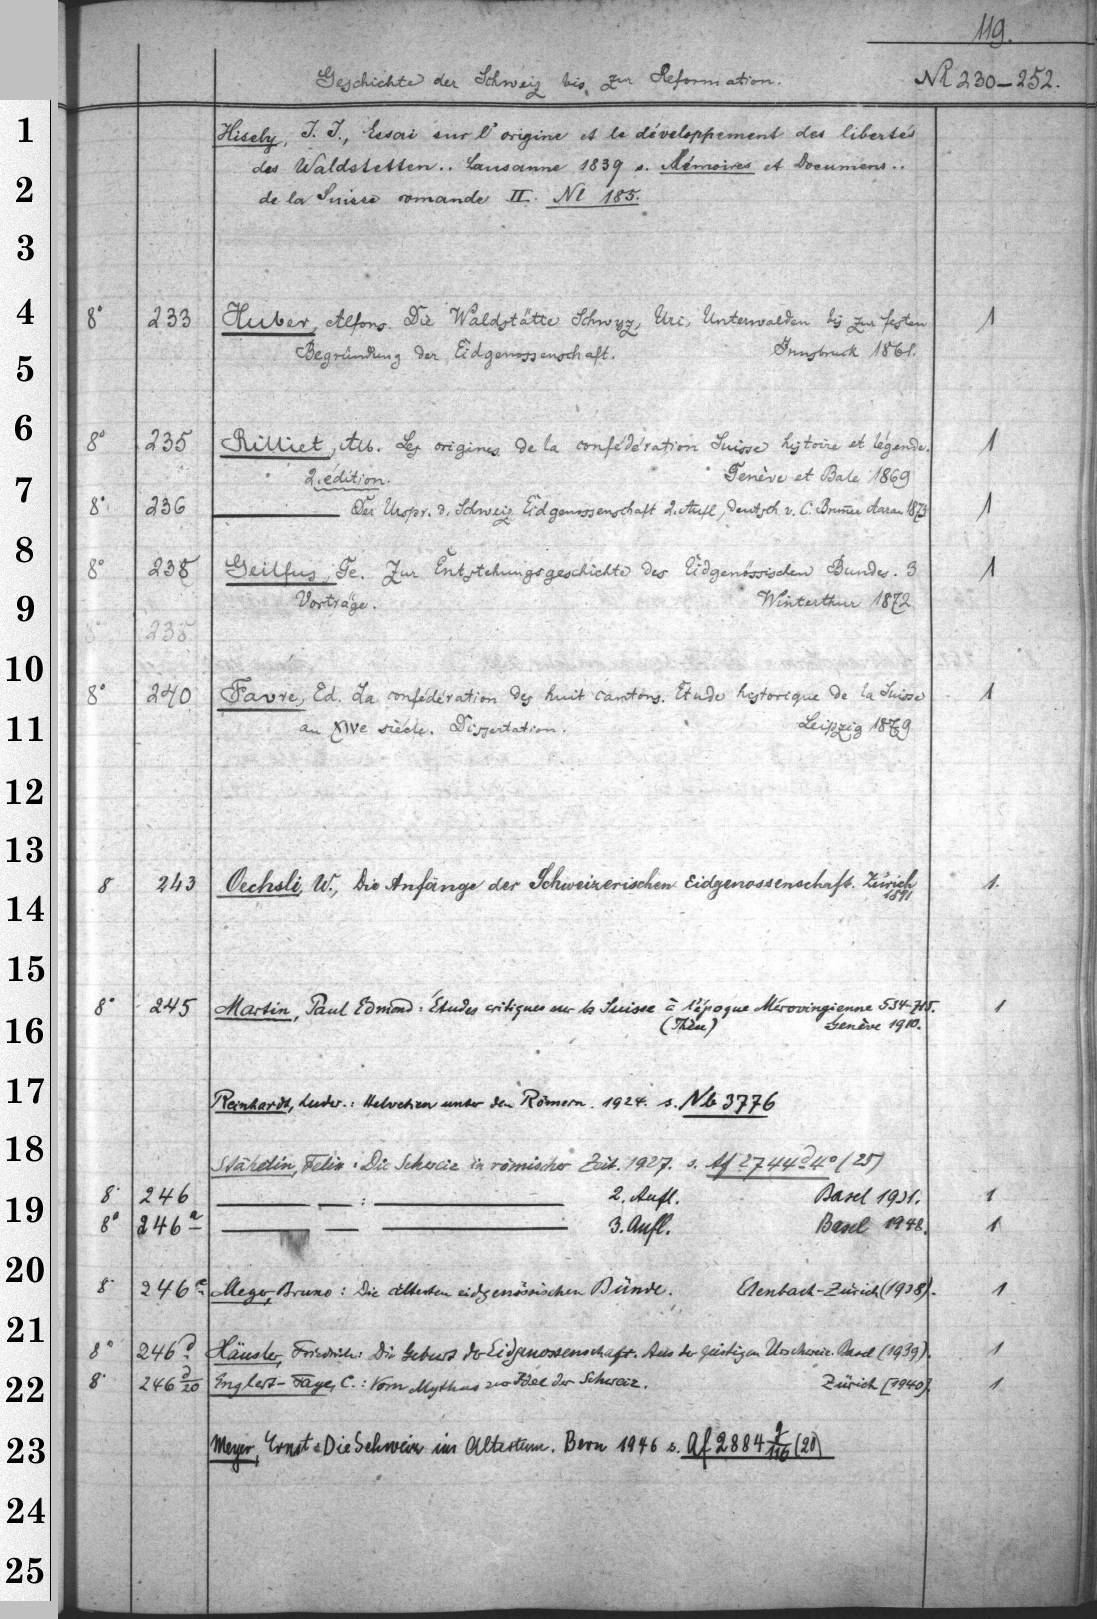 119.
Geschichte der Schweiz bis zur Reformation. Nl 230–252.
1
Hisely, J. J., Essai sur l'origine et le développement des libertés
des Waldstetten.. Lausanne 1839 s. Mémoires et Documens..
2
de la Suisse romande II. Nl 185.
3
4
8° 233 Huber, Alfons. Die Waldstätte Schwyz, Uri, Unterwalden bis zur festen 1
Begründung der Eidgenossenschaft. Innsbruck 1861.
5
6
8° 235 Rilliet, Alb. Les origines de la confédération Suisse histoire et légende. 1
2. édition. Genève et Bale 1869
7
8° 236 ——— Der Urspr. d. Schweiz Eidgenossenschaft 2. Aufl, deutsch v. C. Brunner Aarau 1873 1
8
8° 238 Geilfus, Ge. Zur Entstehungsgeschichte des Eidgenössischen Bundes. 3 1
9
Vorträge. Winterthur 1872
8° 238
10
8° 240 Favre, Ed. La confédération des huit cantons. Etude historique de la Suisse 1
11
au XIVe siècle. Dissertation. Leipzig 1879
12
13
8 243 Oechsli, W., Die Anfänge der Schweizerischen Eidgenossenschaft. Zürich 1.
1891
14
15
8° 245 Martin, Paul Edmond: Études critiques sur la Suisse à l'époque Mérovingienne 534–715. 1
16
(Thèse) Genève 1910.
17
Reinhardt, Ludw.: Helvetien unter den Römern. 1924. s. Nb 3776
18
Stähelin, Felix: Die Schweiz in römischer Zeit. 1927. s. Af 2744 d 4° (25)
8° 246 ——— — : ——— 2. Aufl. Basel 1931. 1
19
8° 246 a ——— — ——— 3. Aufl. Basel 1948. 1
20
8° 246 c Meyer, Bruno: Die ältesten eidgenössischen Bünde. Erlenbach-Zürich (1938). 1
21
8° 246 d Häusler, Friedrich: Die Geburt der Eidgenossenschaft. Aus der geistigen Urschweiz. Basel (1939). 1
22
8° 246 d/20 Englert-Faye, C.: Vom Mythus zur Idee der Schweiz. Zürich (1940). 1
23
Meyer, Ernst: Die Schweiz im Altertum. Bern 1946 s. Af 2884 g/116 (20)
24
25